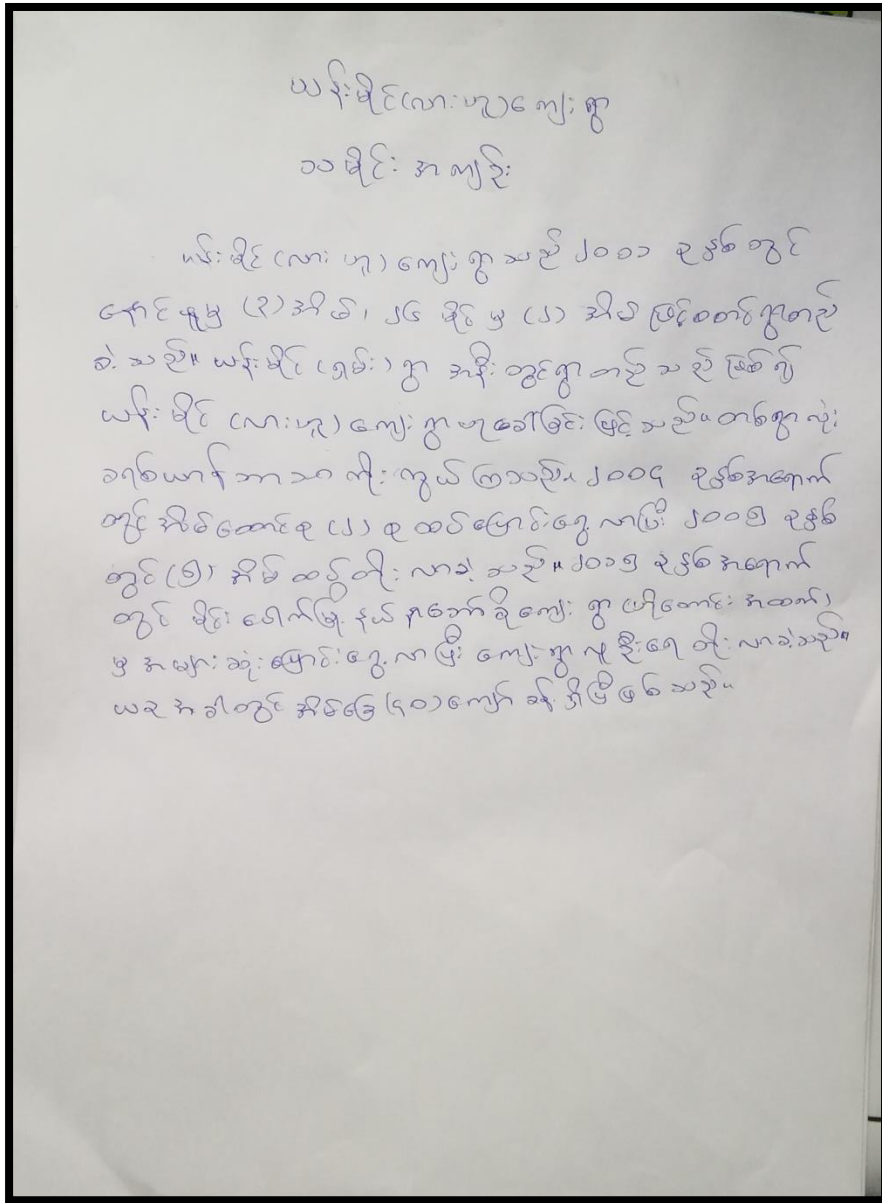 ယန်းမိုင်(လားဟူ)ကျေးရွာ
သမိုင်းအကျဉ်း
ယန်းမိုင်(လားဟူ)ကျေးရွာသည် ၂၀၀၁ ခုနှစ်တွင်
နောင်ဖူမှ (၃)အိမ်၊ ၂၄ မိုင်မှ (၂) အိမ်ဖြင့်စတင်ရွာတည်
ခဲ့သည်။ ယန်းမိုင်(ရှမ်း)ရွာ အနီးတွင်ရွာတည်သည်ဖြစ်၍
ယန်းမိုင် (လားဟူ)ကျေးရွာဟုခေါ်ခြင်းဖြင့်သည်။ တစ်ရွာလုံး
ခရစ်ယာန်ဘာသာကိုးကွယ်ကြသည်။ ၂၀၀၄ ခုနှစ်အရောက်
တွင်အိမ်ထောင်စု (၂) စုထပ်ပြောင်းရွှေ့လာပြီး ၂၀၀၅ ခုနှစ်
တွင်(၅) အိမ်ထပ်တိုးလာခဲ့သည်။ ၂၀၁၅ ခုနှစ်အရောက်
တွင် မိုင်းပေါက်မြို့နယ် နာတော်ခိုကျေးရွာ(ဟိုတောင်းအထက်)
မှ အများဆုံးပြောင်းရွှေ့လာပြီး ကျေးရွာလူဦးရေတိုးလာခဲ့သည်။
ယခုအခါတွင် အိမ်ခြေ(၄၀)ကျော်ခန့်ရှိပြီဖြစ်သည်။